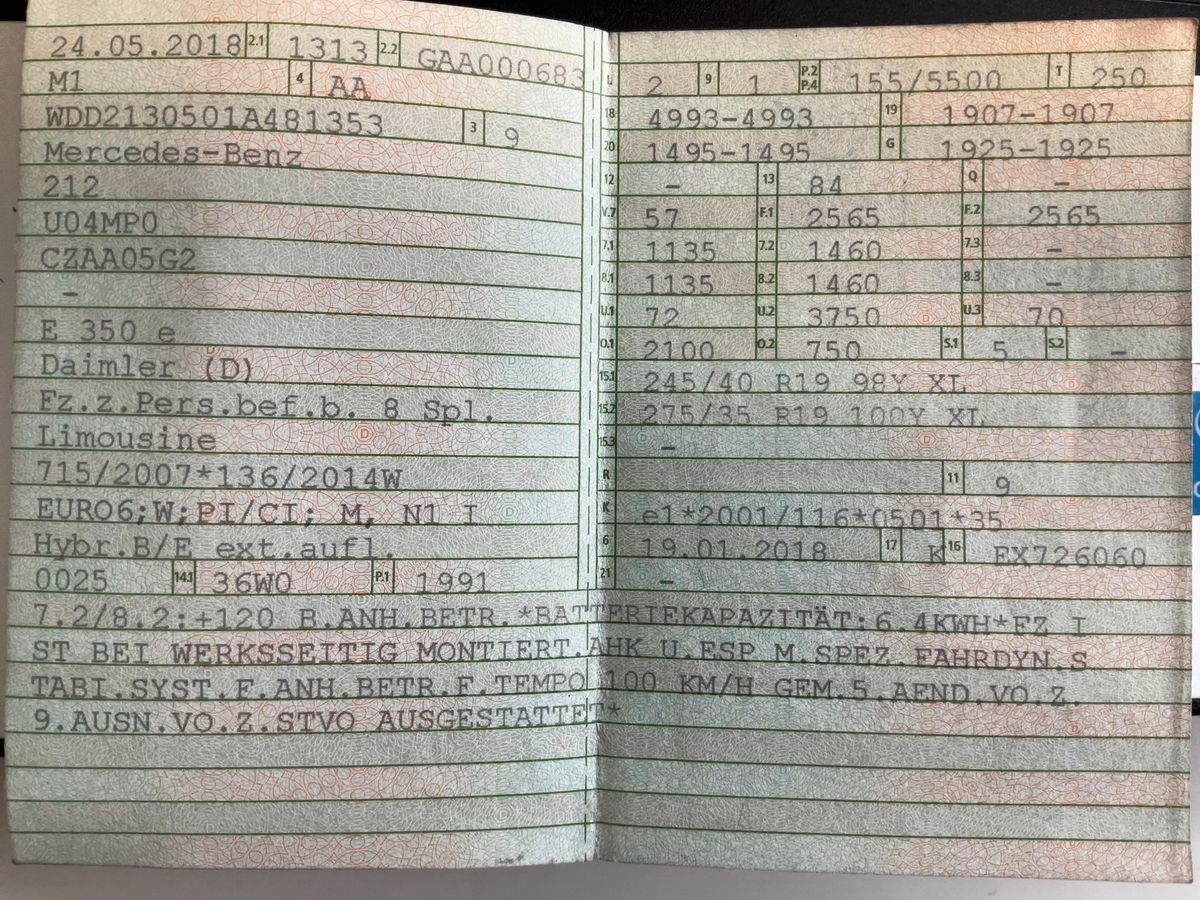 24.05.2018 2.1 1313 2.2 GAA000683
M1 4 AA
WDD2130501A481353 3 9
Mercedes-Benz
212
U04MP0
CZAA05G2
-
E 350 e
Daimler (D)
Fz.z.Pers.bef.b. 8 Spl.
Limousine
715/2007*136/2014W
EURO6;W;PI/CI; M, N1 I
Hybr.B/E ext.aufl.
0025 14.1 36W0 P.1 1991
L 2 9 1 P.2 P.4 155/5500 T 250
18 4993-4993 19 1907-1907
20 1495-1495 G 1925-1925
12 - 13 84 Q -
V.7 57 F.1 2565 F.2 2565
7.1 1135 7.2 1460 7.3 -
8.1 1135 8.2 1460 8.3 -
U.1 72 U.2 3750 U.3 70
O.1 2100 O.2 750 S.1 5 S.2 -
15.1 245/40 R19 98Y XL
15.2 275/35 R19 100Y XL
15.3 -
R 11 9
K e1*2001/116*0501*35
6 19.01.2018 17 K 16 EX726060
21 -
7.2/8.2:+120 B.ANH.BETR.*BATTERIEKAPAZITÄT:6.4KWH*FZ I
ST BEI WERKSSEITIG MONTIERT.AHK U.ESP M.SPEZ.FAHRDYN.S
TABI.SYST.F.ANH.BETR.F.TEMPO 100 KM/H GEM.5.AEND.VO.Z.
9.AUSN.VO.Z.STVO AUSGESTATTET*